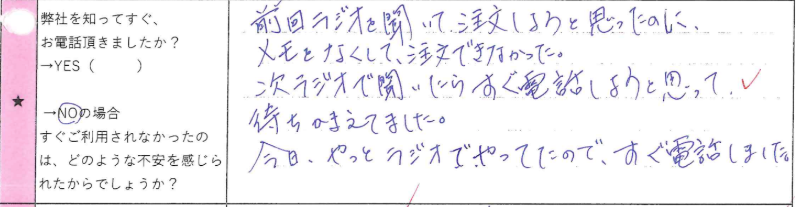 弊社を知ってすぐ、
お電話頂きましたか？
→YES（　　　）
★
→NOの場合
すぐご利用されなかったの
は、どのような不安を感じら
れたからでしょうか？
前回ラジオを聞いて、注文しようと思ったのに、
メモをなくして、注文できなかった。
次ラジオで聞いたらすぐ電話しようと思って、
待ちかまえてました。
今日、やっとラジオでやってたので、すぐ電話しました。